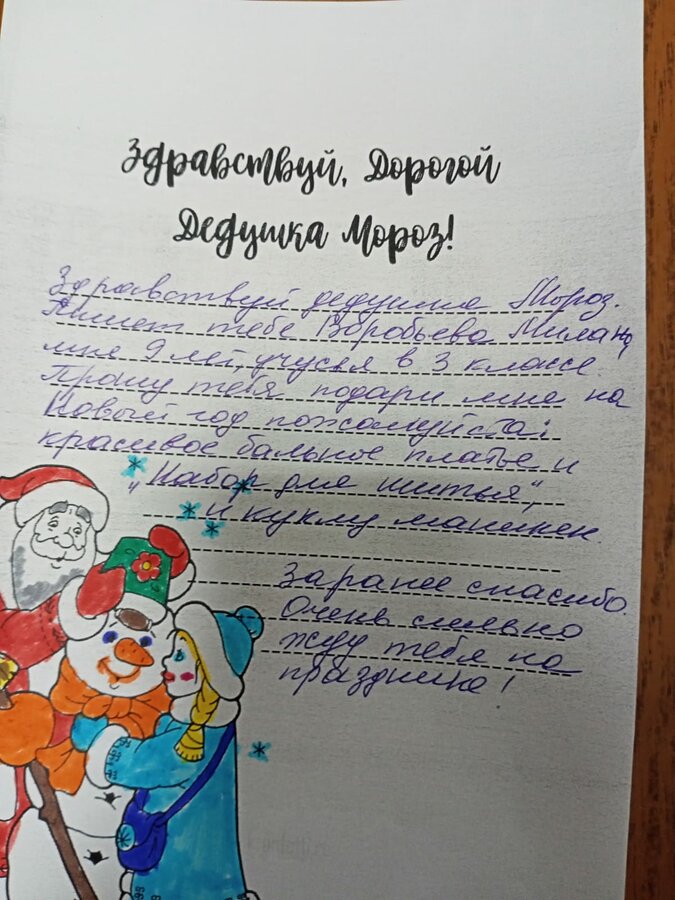 Здравствуй, Дорогой
Дедушка Мороз!
Здравствуй дедушка Мороз.
Пишет тебе Воробьева Милана,
мне 9 лет, учусья в 3 классе.
Прошу тебя подари мне на
Новый год пожалуйста:
красивое бальное платье и
"Набор для шитья",
и куклу манекен
Заранее спасибо.
Очень сильно
жду тебя на
празднике!